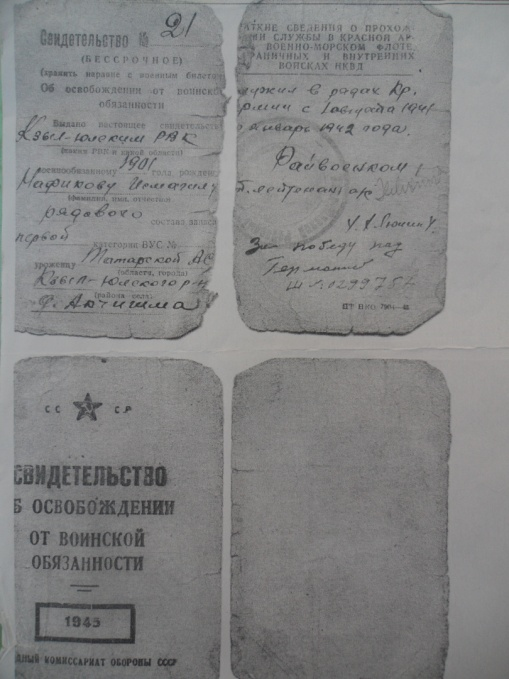 Свидетельство № 21
(БЕССРОЧНОЕ)
(хранить наравне с военным билетом
Об освобождении от воинско
обязанности
Выдано настоящее свидетельств
Кзыл-Юлским РВК
военнообязанному 1901 года рожден
Исмагилу
(фамилия, имя, отчество)
рядового состава запаса
первой
категории ВУС №
уроженцу Татарской АС
(области, города)
Кзыл-Юлского р-н
(района села)
РАТКИЕ СВЕДЕНИЯ О ПРОХОЖ
ИИ СЛУЖБЫ В КРАСНОЙ АР
ВОЕННО-МОРСКОМ ФЛОТЕ
РАНИЧНЫХ И ВНУТРЕННИХ
ВОЙСКАХ НКВД
служил в рядах Кр.
Армии с 1 августа 1941
январь 1942 года.
Райвоенком
лейтенант
За победу над
Германией
СС СР
СВИДЕТЕЛЬСТВО
Б ОСВОБОЖДЕНИИ
ОТ ВОИНСКОЙ
ОБЯЗАННОСТИ
1945
ДНЫЙ КОМИССАРИАТ ОБОРОНЫ СССР